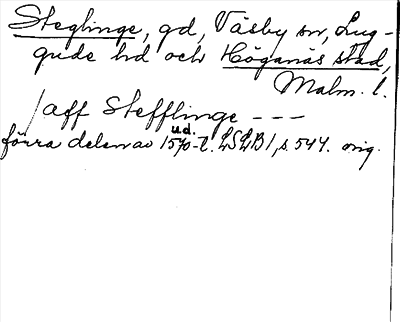 Steglinge, gd, Väsby sn, Lug-
gude hd och Höganäs stad,
Malm. l.
/aff Stefflinge ---
ud.
förra delen av 1570-t. LSLB1, s. 544. orig.